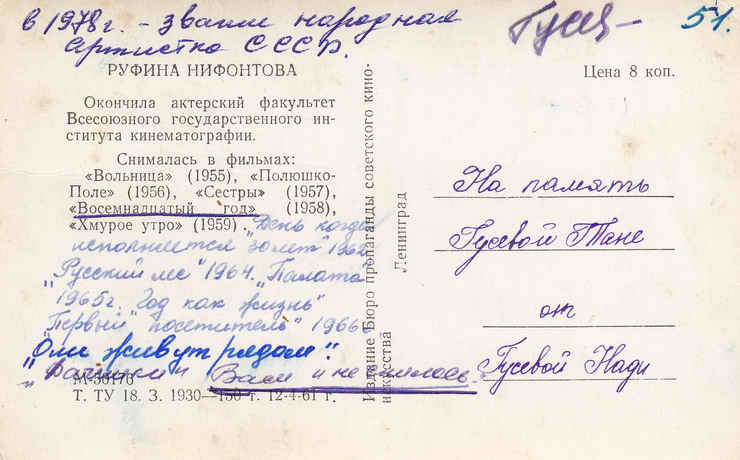 в 1978 г. - звание народная
артистка СССР.
51.
РУФИНА НИФОНТОВА
Окончила актерский факультет
Всесоюзного государственного ин-
ститута кинематографии.
Снималась в фильмах:
«Вольница» (1955), «Полюшко-
Поле» (1956), «Сестры» (1957),
«Восемнадцатый год» (1958),
«Хмурое утро» (1959) „День когда
исполняется 30 лет" 1962
„Русский лес" 1964. „Палата"
1965г. Год как жизнь"
"Первый посетитель" 1966
"Они живут рядом".
Вам и не снилось
М-50170
Т. ТУ 18. З. 1930—150 т. 12-4-61 г.
Издание Бюро пропаганды советского кино-
искусства
Ленинград
Цена 8 коп.
На память
Гусевой Тане
от
Гусевой Нади